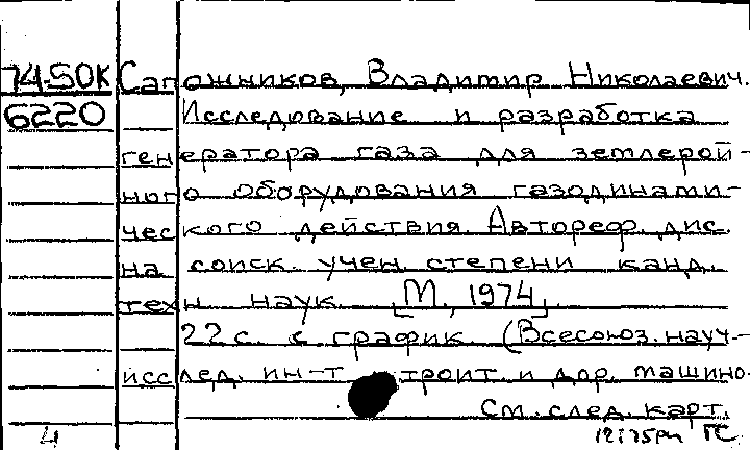 74-50К Сапожников, Владимир Николаевич.
6220 Исследование и разработка
генератора газа для землерой-
ного оборудования газодинами-
ческого действия. Автореф. дис.
на соиск. учен. степени канд.
техн. наук. [М., 1974].
22 с. с график. (Всесоюз. науч.-
исслед. ин-т строит. и дор. машино-
См. след. карт.
4 ГС